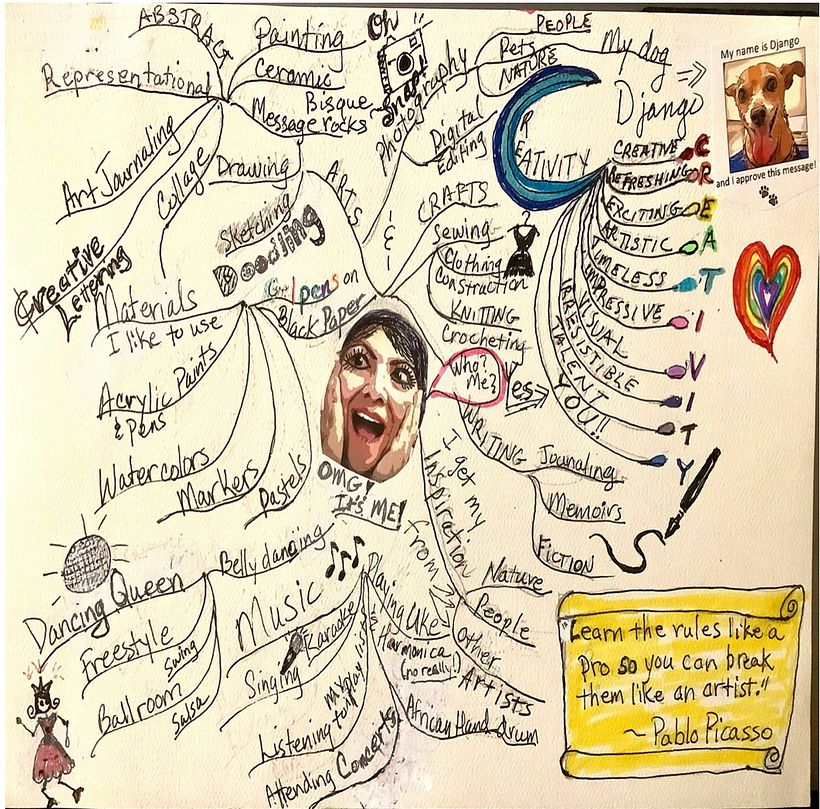 ABSTRACT
Representational
Art Journaling
Collage
Creative
Lettering
Painting
Ceramic
Bisque
Message rocks
Drawing
Sketching
Doodling
Gel pens on
Black Paper
ARTS
&
Oh
Snap!
Photography
PEOPLE
Pets
NATURE
My dog
Django
Digital
Editing
My name is Django
and I approve this message!
CRAFTS
Sewing
Clothing
Construction
KNITTING
Crocheting
CREATIVITY
CREATIVE
REFRESHING
EXCITING
ARTISTIC
TIMELESS
IMPRESSIVE
VISUAL
IRRESISTIBLE
TALENT
YOU!!
C
R
E
A
T
I
V
I
T
Y
Materials
I like to use
Acrylic Paints
& Pens
Watercolors
Markers
Pastels
OMG!
It's ME!
Who?
Me?
Yes
WRITING
Journaling
Memoirs
FICTION
I get my
Inspiration
from
Nature
People
Other
Artists
Dancing Queen
Belly dancing
Freestyle
Swing
Ballroom
Salsa
Music
Karaoke
Singing
Listening to
my play list
Attending Concerts
Playing UKE
&
Harmonica
(no really!)
African Hand Drum
"Learn the rules like a
Pro so you can break
them like an artist."
~ Pablo Picasso